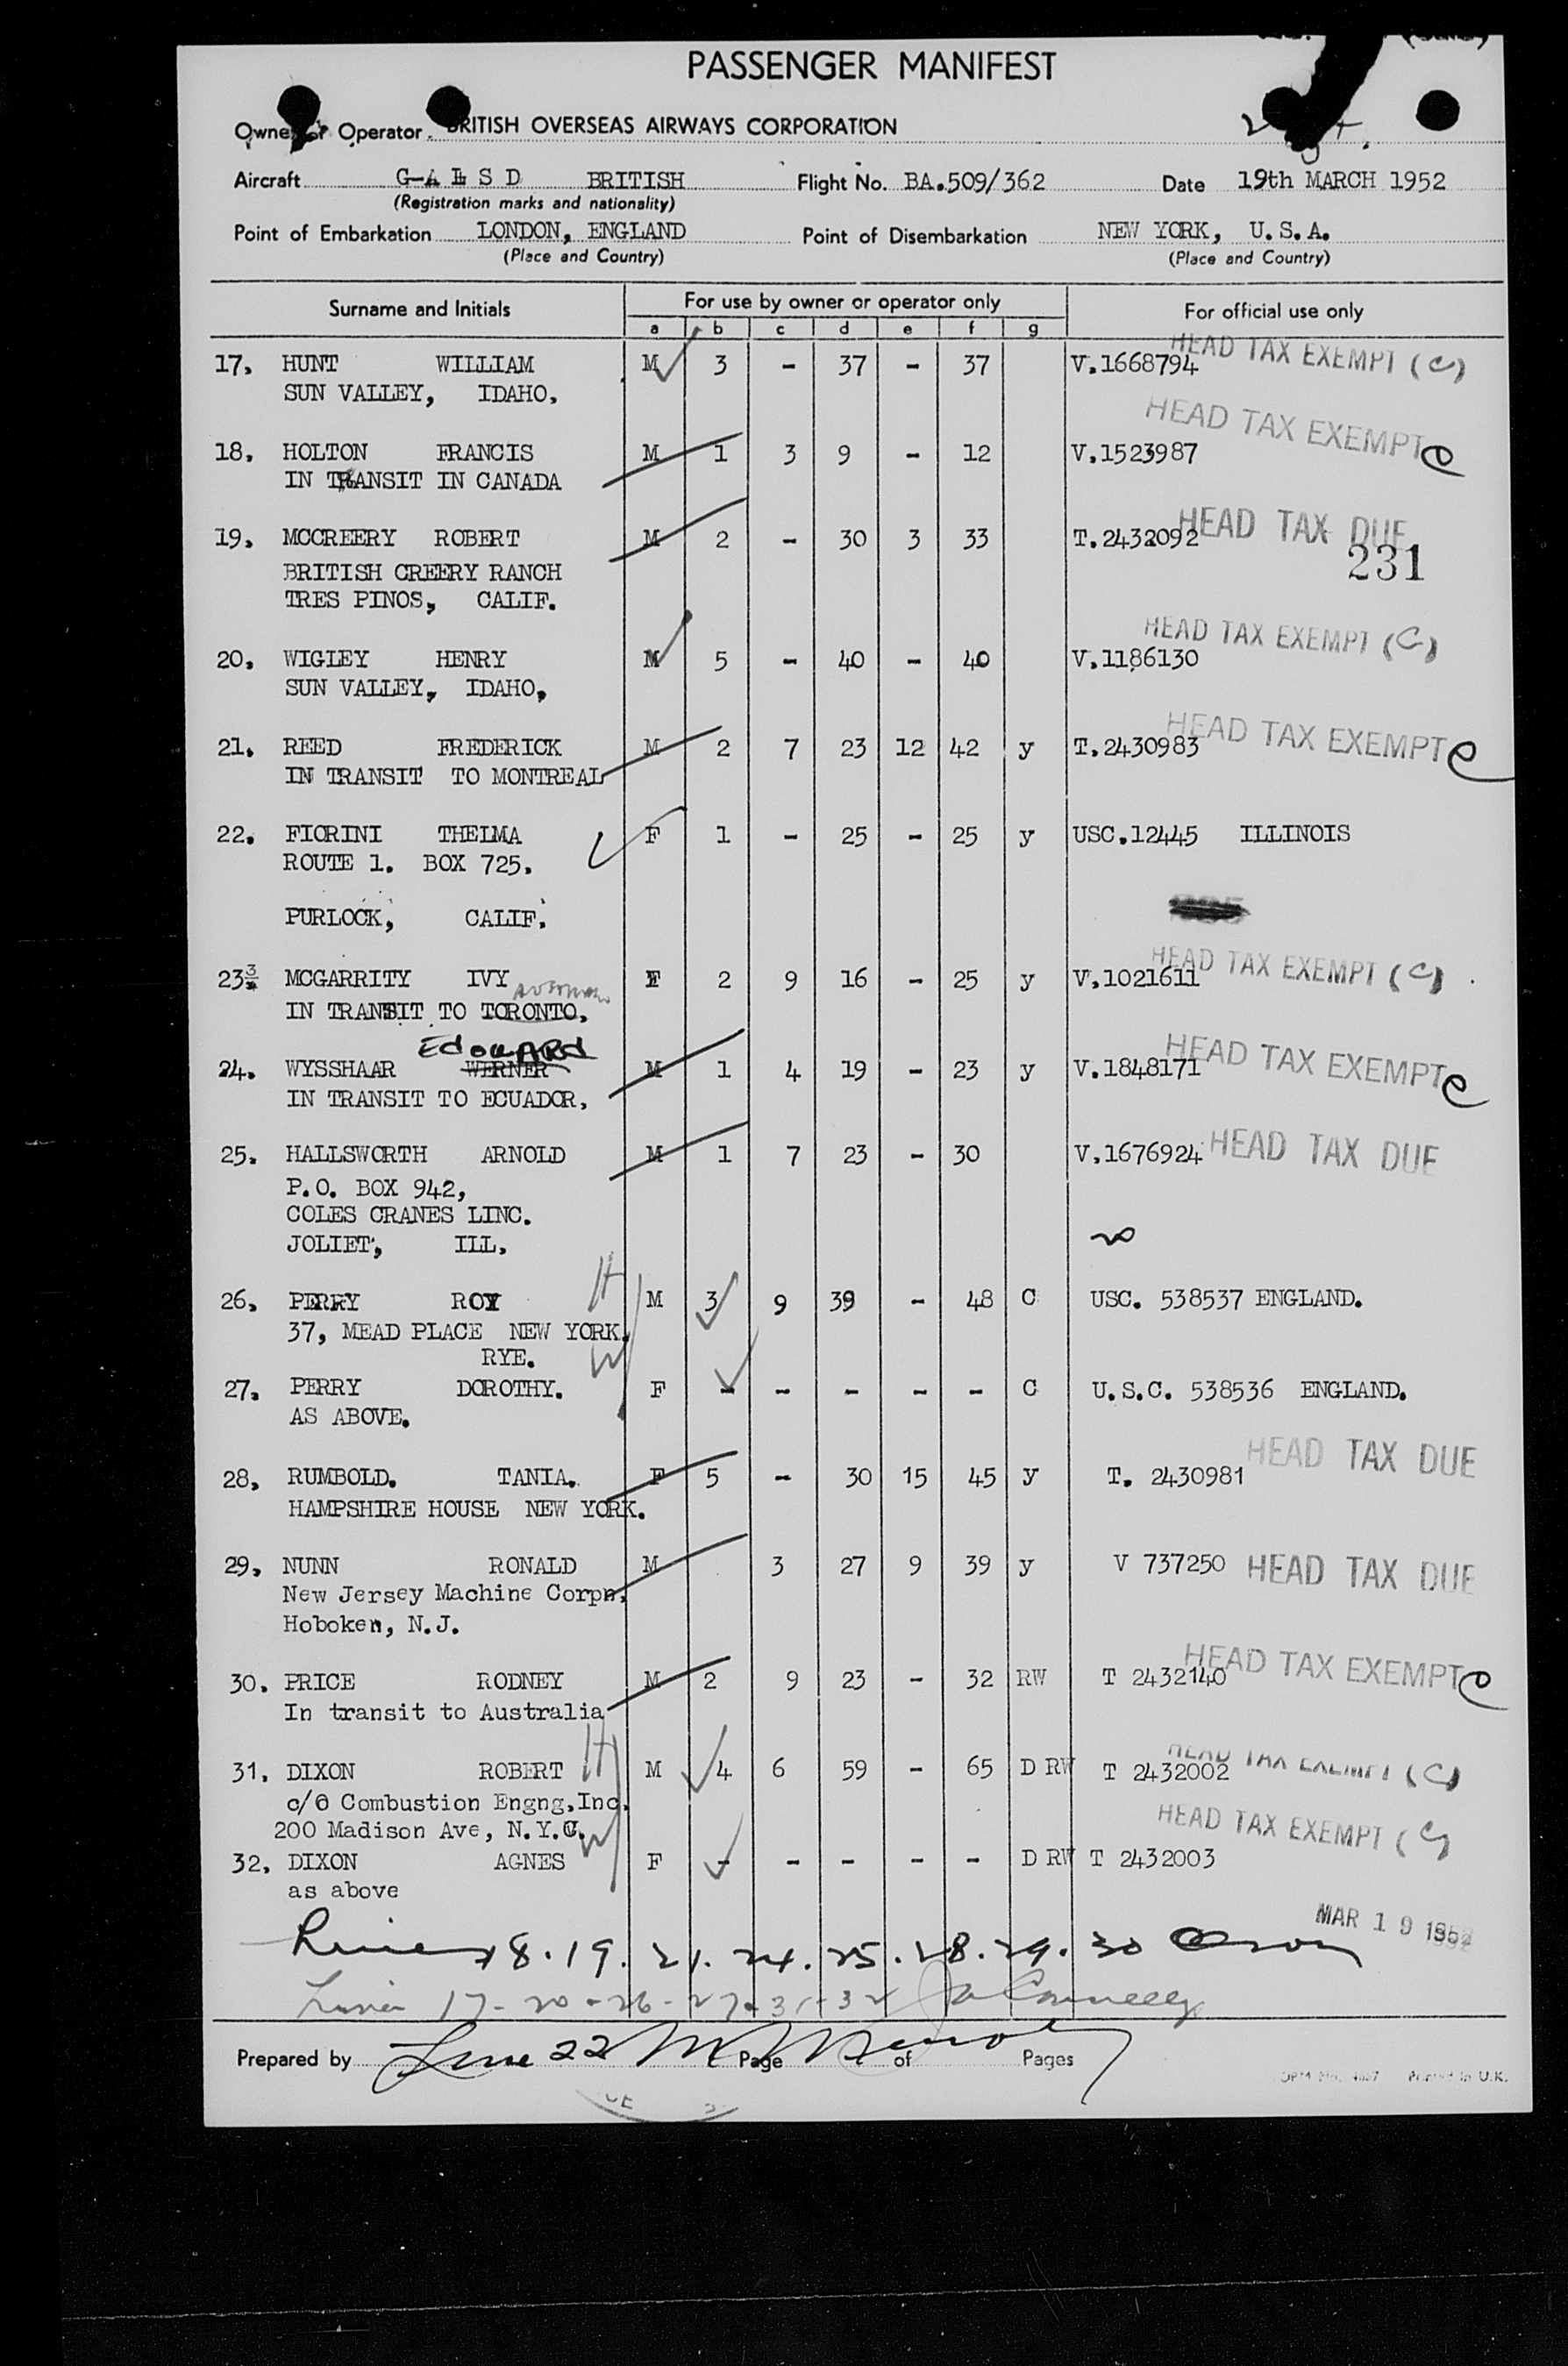 PASSENGER MANIFEST
Owner or Operator BRITISH OVERSEAS AIRWAYS CORPORATION
Aircraft G-A L S D BRITISH Flight No. BA.509/362 Date 19th MARCH 1952
(Registration marks and nationality)
Point of Embarkation LONDON, ENGLAND Point of Disembarkation NEW YORK, U.S.A.
(Place and Country) (Place and Country)
Surname and Initials For use by owner or operator only For official use only
a b c d e f g
17. HUNT WILLIAM M 3 - 37 - 37 V.1668794 HEAD TAX EXEMPT (C)
SUN VALLEY, IDAHO.
HEAD TAX EXEMPT C
18. HOLTON FRANCIS M 1 3 9 - 12 V.1523987
IN TRANSIT IN CANADA
19. MCCREERY ROBERT M 2 - 30 3 33 T.2432092 HEAD TAX DUE
231
BRITISH CREERY RANCH
TRES PINOS, CALIF.
HEAD TAX EXEMPT (C)
20. WIGLEY HENRY M 5 - 40 - 40 V.1186130
SUN VALLEY, IDAHO,
21. REED FREDERICK M 2 7 23 12 42 y T.2430983 HEAD TAX EXEMPT C
IN TRANSIT TO MONTREAL
22. FIORINI THELMA F 1 - 25 - 25 y USC.12445 ILLINOIS
ROUTE 1. BOX 725.
PURLOCK, CALIF.
23. MCGARRITY IVY F 2 9 16 - 25 y V.1021611 HEAD TAX EXEMPT (C)
IN TRANSIT TO TORONTO.
EdouARd
24. WYSSHAAR WERNER M 1 4 19 - 23 y V.1848171 HEAD TAX EXEMPT C
IN TRANSIT TO ECUADOR.
25. HALLSWORTH ARNOLD M 1 7 23 - 30 V.1676924 HEAD TAX DUE
P.O. BOX 942,
COLES CRANES LINC.
JOLIET, ILL.
26. PERRY ROY M 3 9 39 - 48 C USC. 538537 ENGLAND.
37, MEAD PLACE NEW YORK.
RYE.
H
W
27. PERRY DOROTHY. F - - - - - C U.S.C. 538536 ENGLAND.
AS ABOVE.
28. RUMBOLD. TANIA. F 5 - 30 15 45 y T. 2430981 HEAD TAX DUE
HAMPSHIRE HOUSE NEW YORK.
29. NUNN RONALD M 3 27 9 39 y V 737250 HEAD TAX DUE
New Jersey Machine Corpn,
Hoboken, N.J.
30. PRICE RODNEY M 2 9 23 - 32 RW T 2432140 HEAD TAX EXEMPT C
In transit to Australia
31. DIXON ROBERT H M 4 6 59 - 65 D RW T 2432002 HEAD TAX EXEMPT (C)
c/o Combustion Engng,Inc.
200 Madison Ave, N.Y.C. W
HEAD TAX EXEMPT (C)
32. DIXON AGNES F - - - - - D RW T 2432003
as above
MAR 19 1952
Lines 18.19.21.24.25.28.29.30
Lines 17-20-26-27-31-32 Connelly
Prepared by Line 22 Page of Pages
Printed in U.K.